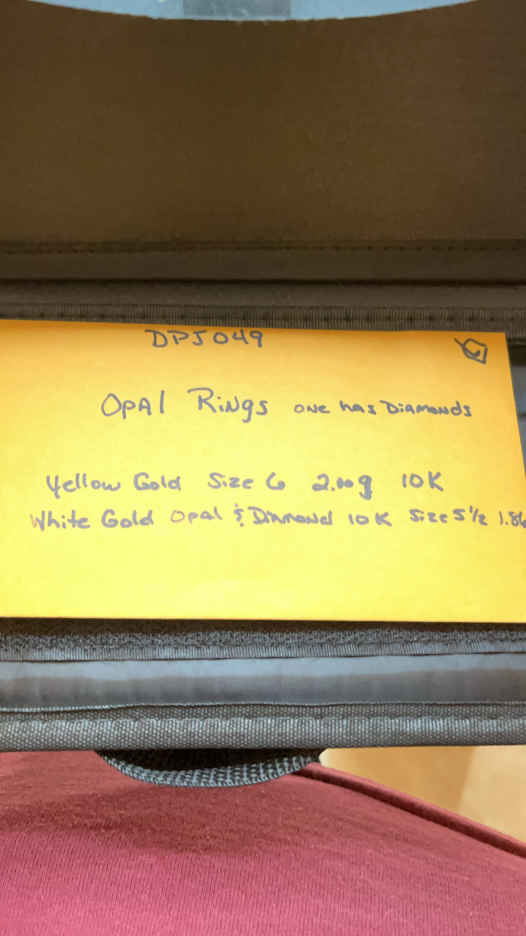 DPJ049
OPAl RiNgs ONE has DiAMONDS
Yellow Gold Size 6 2.00g 10K
White Gold Opal & Diamond 10K Size 5 1/2 1.86